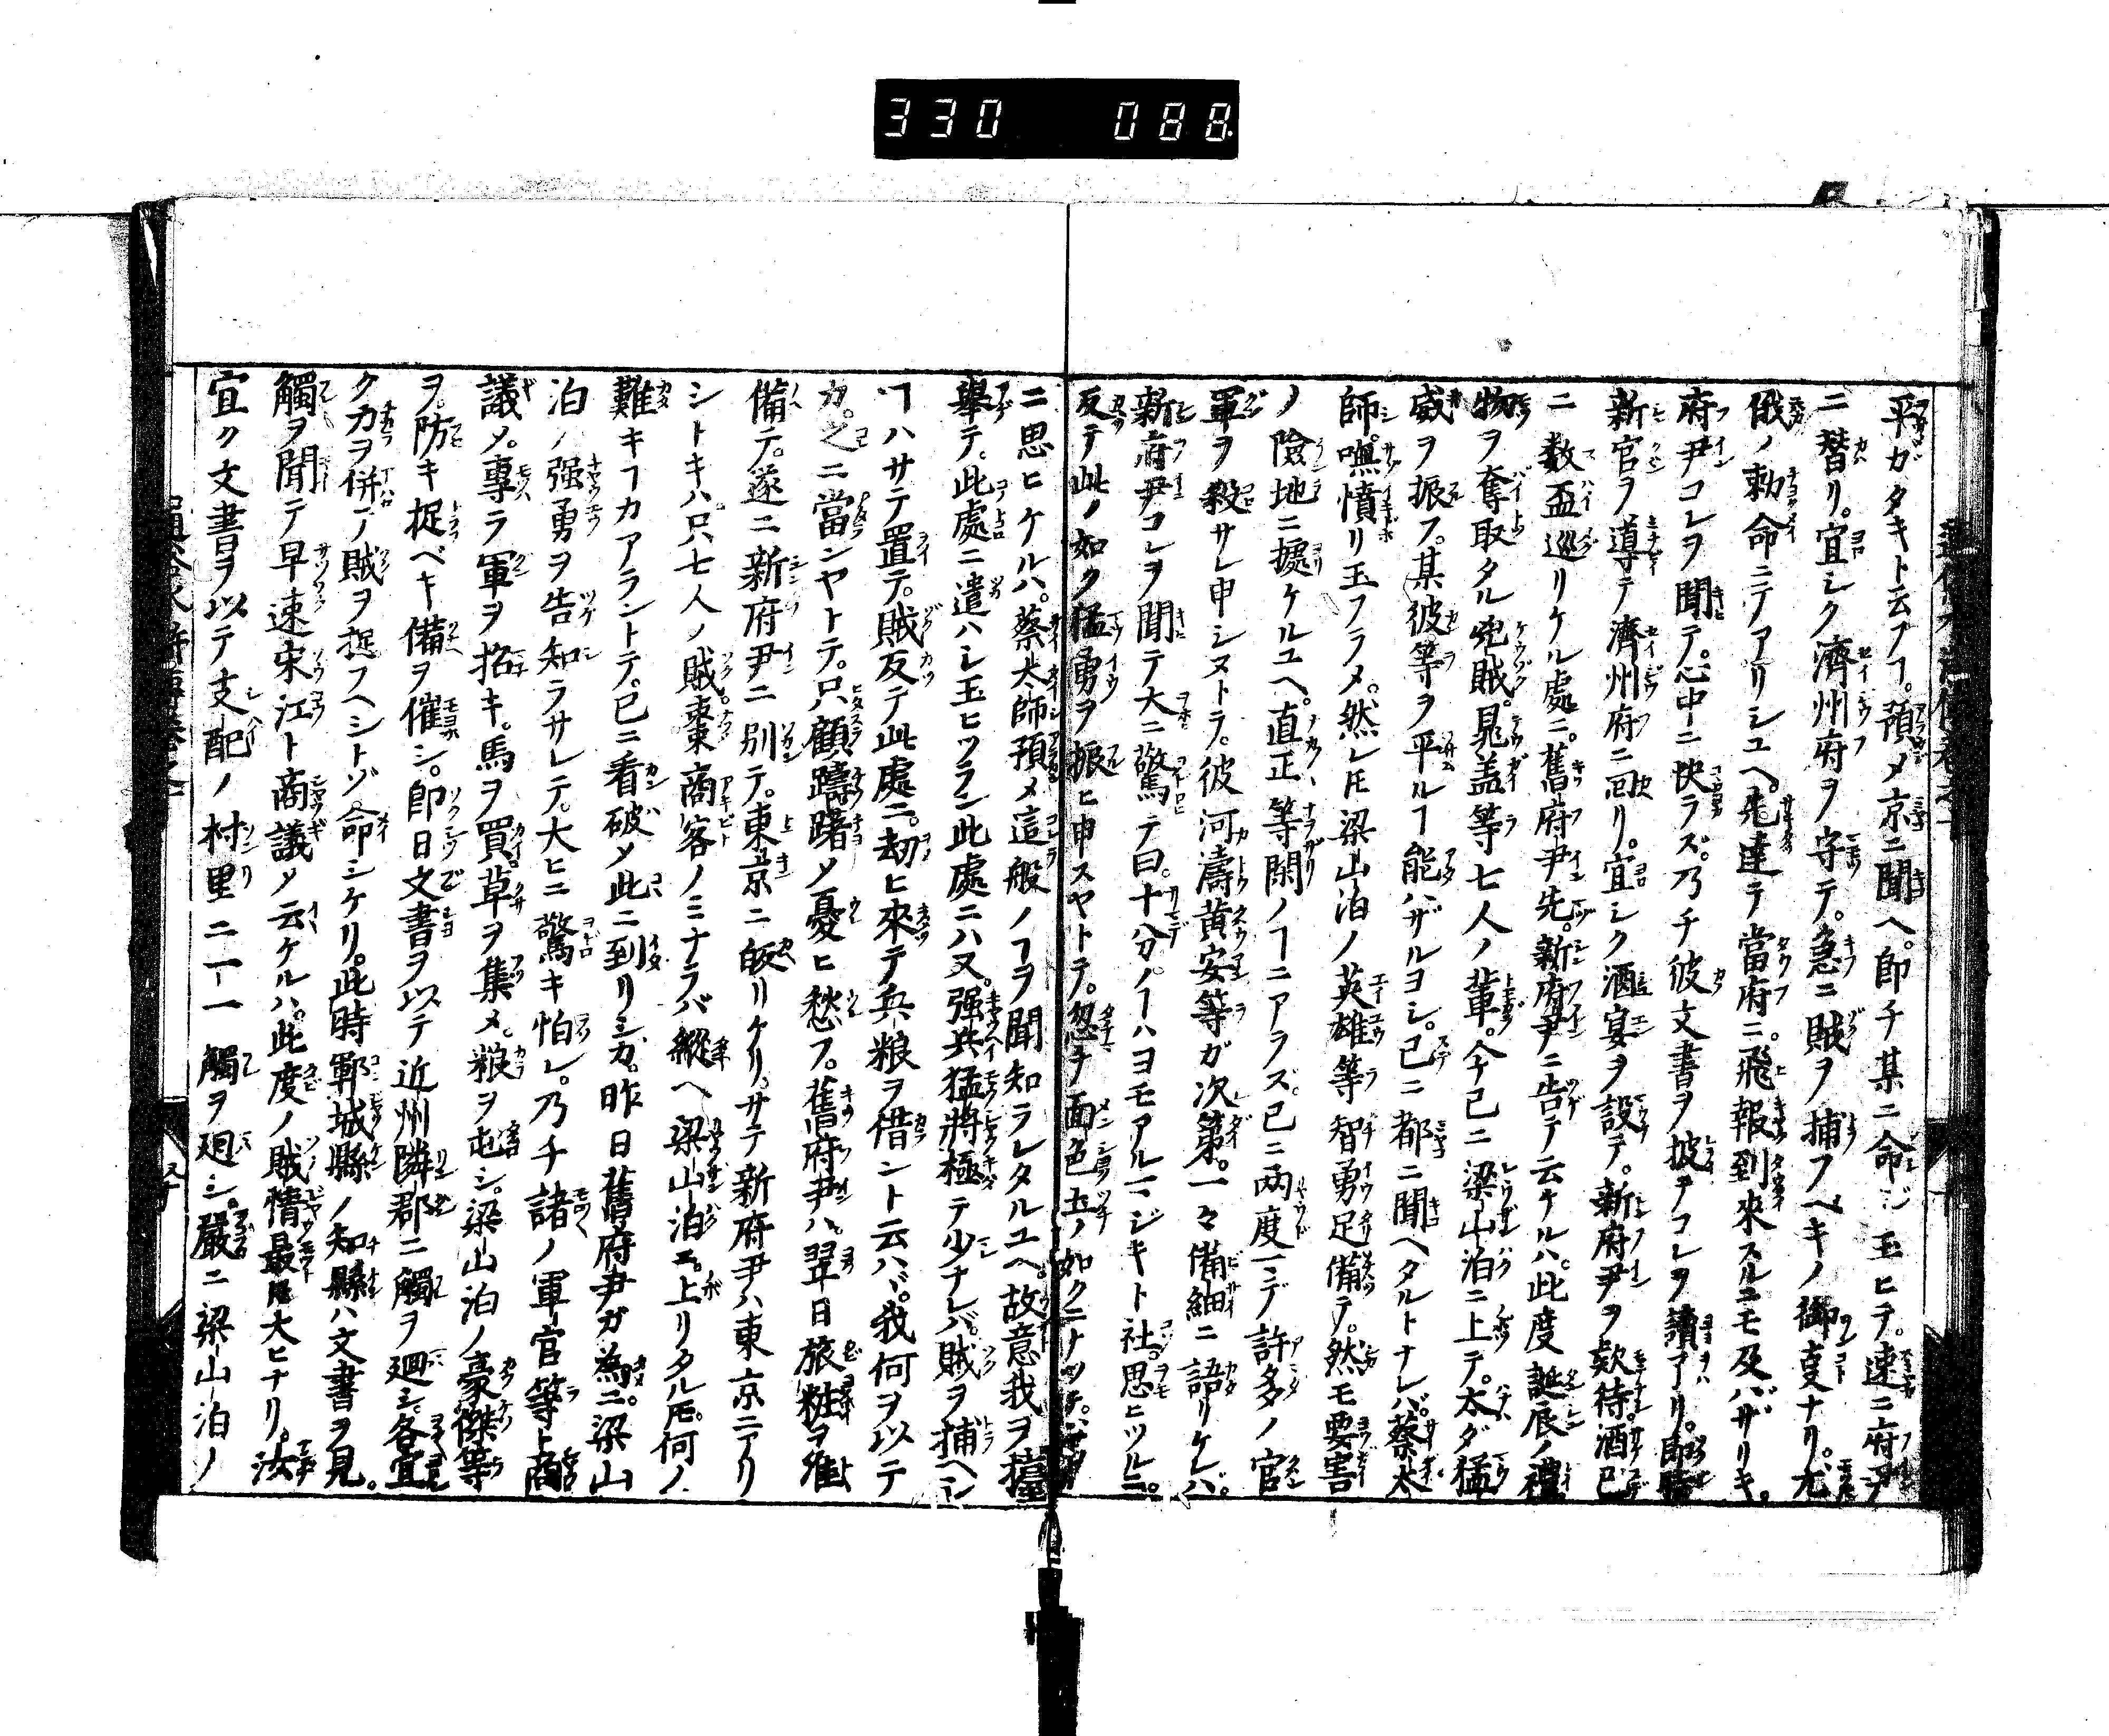 330 088
平ガタキト云フヿ。預メ京ニ聞ヘ。即チ某ニ命ジ玉ヒテ。速ニ府尹
ニ替リ。宜シク濟州府ヲ守テ。急ニ賊ヲ捕フベキノ御叓ナリ。尤
俄ノ勅命ニテアリシユヘ。先達テ當府ニ。飛報到來スルニモ及バザリキ。
府尹コレヲ聞テ。心中ニ快ラズ。乃チ彼文書ヲ披テコレヲ讀アリ。
新官ヲ導テ濟州府ニ回リ。宜シク酒宴ヲ設テ。新府尹ヲ欵待。酒已
ニ数盃巡リケル處ニ。舊府尹先。新府尹ニ告テ云ケルハ。此度誕辰ノ禮
物ヲ奪取タル兇賊。晁盖等七人ノ輩。今已ニ梁山泊ニ上テ。太ダ猛
威ヲ振フ。某彼等ヲ平ルヿ能ハザルヨシ。已ニ都ニ聞ヘタルトナレバ。蔡太
師。嘸憤リ玉フラメ。然レ𪜈梁山泊ノ英雄等智勇足備テ。然モ要害
ノ險地ニ據ケルユヘ。直正等閑ノヿニアラズ。已ニ両度マデ許多ノ官
軍ヲ殺サレ申シヌトラ。彼河濤黄安等ガ次第。一々備細ニ語リケレバ。
新府尹コレヲ聞テ大ニ驚テ曰。十分ノヿハヨモアルマジキト社。思ヒツルニ。
反テ此ノ如ク猛勇ヲ振ヒ申スヤトテ。忽チ面色土ノ如クニナツテ。
ニ思ヒケルハ。蔡太師預メ這般ノヿヲ聞知ラレタルユヘ。故意我ヲ擡
舉テ。此處ニ遣ハシ玉ヒツラン此處ニハ又。强兵猛將極テ少ナレバ。賊ヲ捕ヘン
ヿハサテ置テ。賊反テ此處ニ。刧ヒ來テ兵粮ヲ借ント云ハバ。我何ヲ以テ
カ。之ニ當ンヤトテ。只顧躊躇メ憂ヒ愁フ。舊府尹ハ。翌日旅粧ヲ准
備テ。遂ニ新府尹ニ別テ。東京ニ皈リケリ。サテ新府尹ハ東京ニアリ
シトキハ。只七人ノ賊。棗商客ノミナラバ縱ヘ梁山泊エ。上リタル𪜈。何ノ
難キヿカアラントテ。已ニ看破メ此ニ到リシガ。昨日舊府尹ガ為ニ。梁山
泊ノ强勇ヲ告知ラサレテ。大ヒニ驚キ怕レ。乃チ諸ノ軍官等ト商
議メ。專ラ軍ヲ招キ。馬ヲ買。草ヲ集メ。粮ヲ屯シ。梁山泊ノ豪傑等
ヲ。防キ捉ベキ備ヲ催シ。即日文書ヲ以テ近州隣郡ニ觸ヲ廻シ。各宜
ク力ヲ併テ賊ヲ捉フヘシトゾ。命シケリ。此時鄆城縣ノ知縣ハ文書ヲ見。
觸ヲ聞テ早速宋江ト商議メ云ケルハ。此度ノ賊情最𪜈大ヒナリ。汝
宜ク文書ヲ以テ支配ノ村里ニ一一觸ヲ廻シ。嚴ニ梁山泊ノ